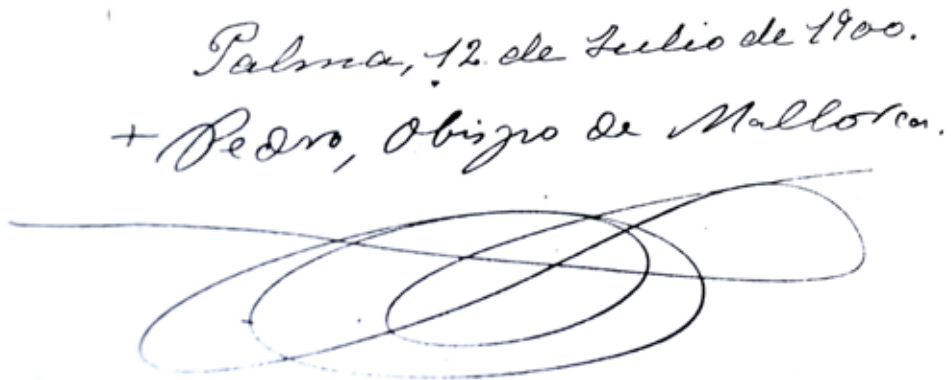 Palma, 12 de Julio de 1900.
+ Pedro, Obispo de Mallorca.